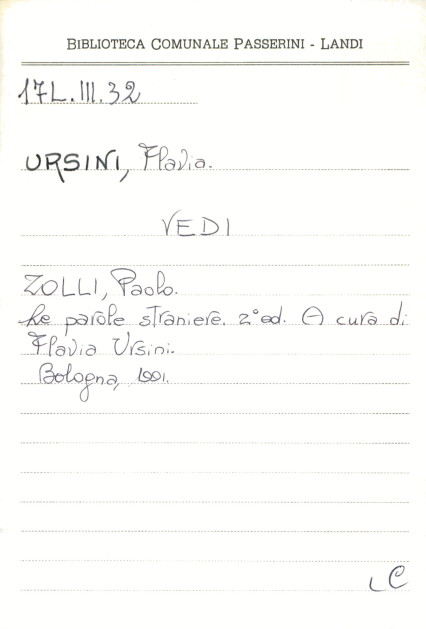 BIBLIOTECA COMUNALE PASSERINI - LANDI
17L.III.32
URSINI, Flavia.
VEDI
ZOLLI, Paolo.
Le parole straniere. 2ª ed. A cura di
Flavia Ursini.
Bologna, 1991.
LC